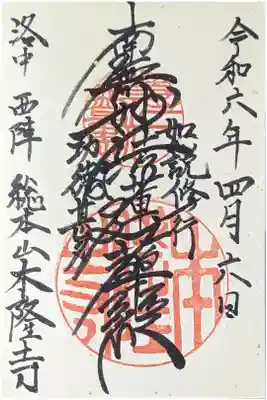 令和六年四月六日
如説修行
南無妙法蓮華経
功徳甚多
洛中 西陣 総本山本隆寺